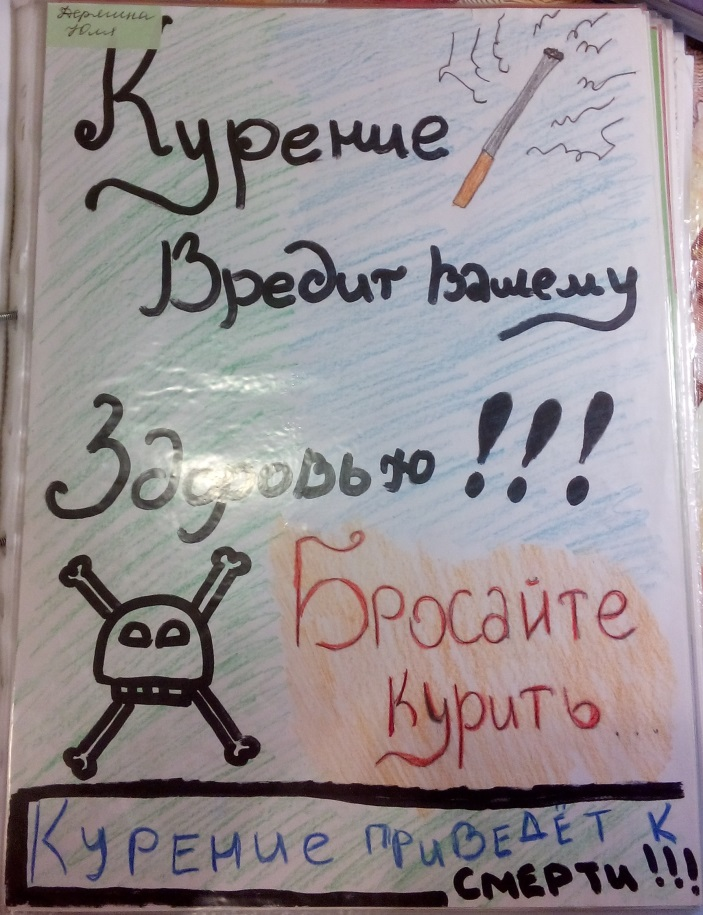 Юля
Курение
Вредит вашему
Здоровью !!!
Бросайте
курить...
Курение приведёт к
смерти!!!